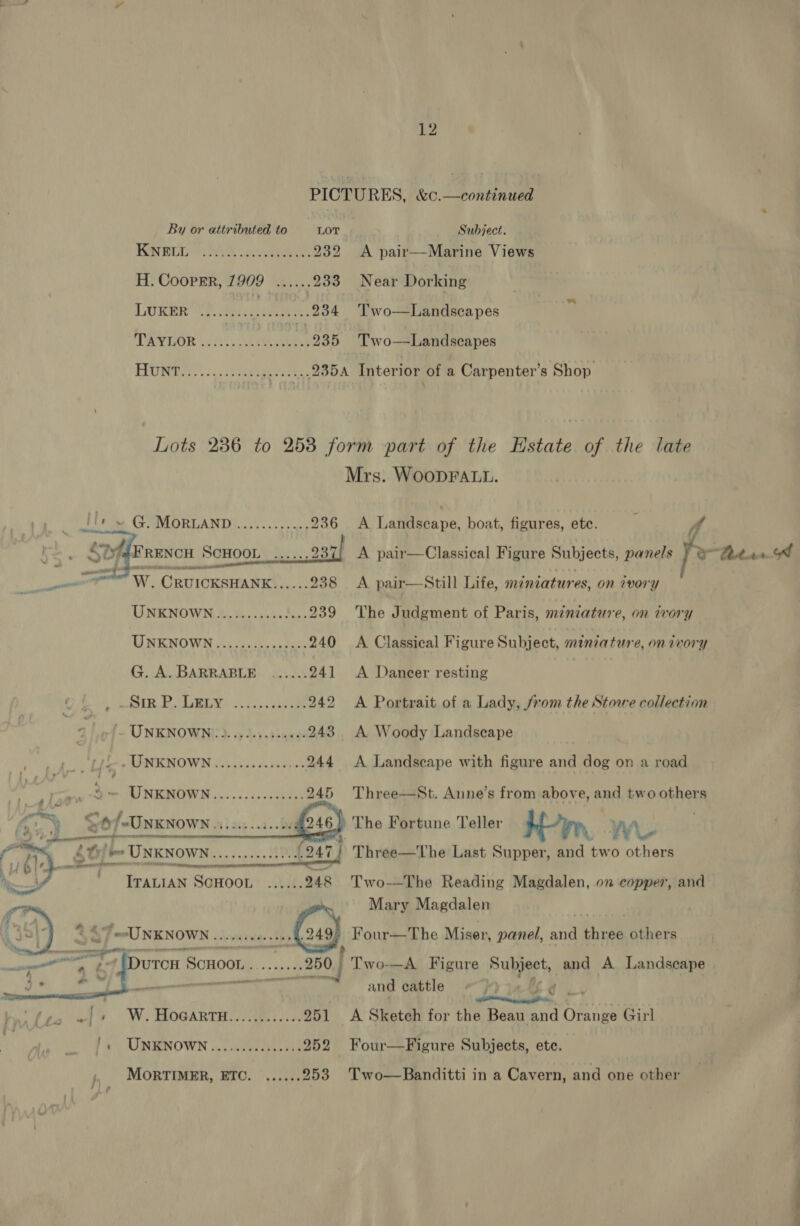 12
PICTURES, &c.—continued
By or attributed to LOT Subject.
KNELL ........................232 A pair—Marine Views
H. COOPER, 1909 ......233 Near Dorking
LUKER ........................234 Two—Landscapes
TAYLOR ........................235 Two—Landscapes
HUNT ........................235A Interior of a Carpenter's Shop
Lots 236 to 253 form part of the Estate of the late
Mrs. WOODFALL.
G. MORLAND ............236 A Landscape, boat, figures, etc.
FRENCH SCHOOL ......237 A pair—Classical Figure Subjects, panels
W. CRUICKSHANK......238 A pair—Still Life, miniatures, on ivory
UNKNOWN ...............239 The Judgment of Paris, miniature, on ivory
UNKNOWN ...............240 A Classical Figure Subject, miniature, on ivory
G. A. BARRABLE ......241 A Dancer resting
SIR P. LELY ............242 A Portrait of a Lady, from the Stowe collection
UNKNOWN ...............243 A Woody Landscape
UNKNOWN ...............244 A Landscape with figure and dog on a road
UNKNOWN ...............245 Three—St. Anne's from above, and two others
UNKNOWN ...............246 The Fortune Teller
UNKNOWN ...............247 Three—The Last Supper, and two others
ITALIAN SCHOOL ......248 Two—The Reading Magdalen, on copper, and
Mary Magdalen
UNKNOWN ...............249 Four—The Miser, panel, and three others
DUTCH SCHOOL .........250 Two—A Figure Subject, and A Landscape
and cattle
W. HOGARTH............251 A Sketch for the Beau and Orange Girl
UNKNOWN ...............252 Four—Figure Subjects, etc.
MORTIMER, ETC. ......253 Two—Banditti in a Cavern, and one other